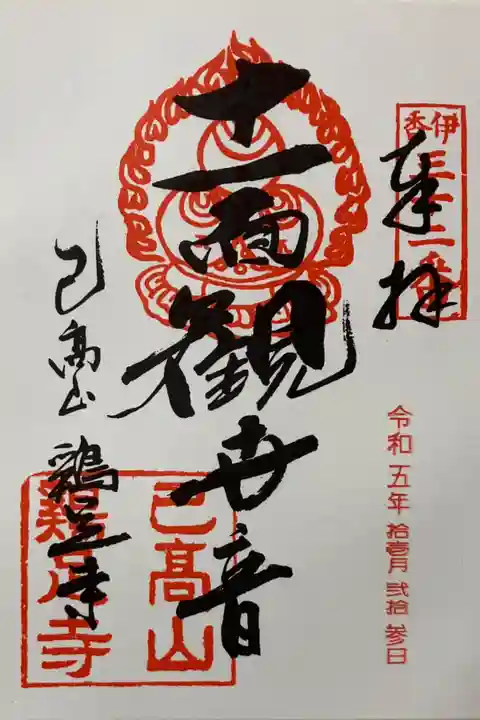 奉拝
伊香
三十三番
令和五年 拾壱月 弐拾参日
十一面観世音
己高山 鶏足寺
己高山
鶏足寺